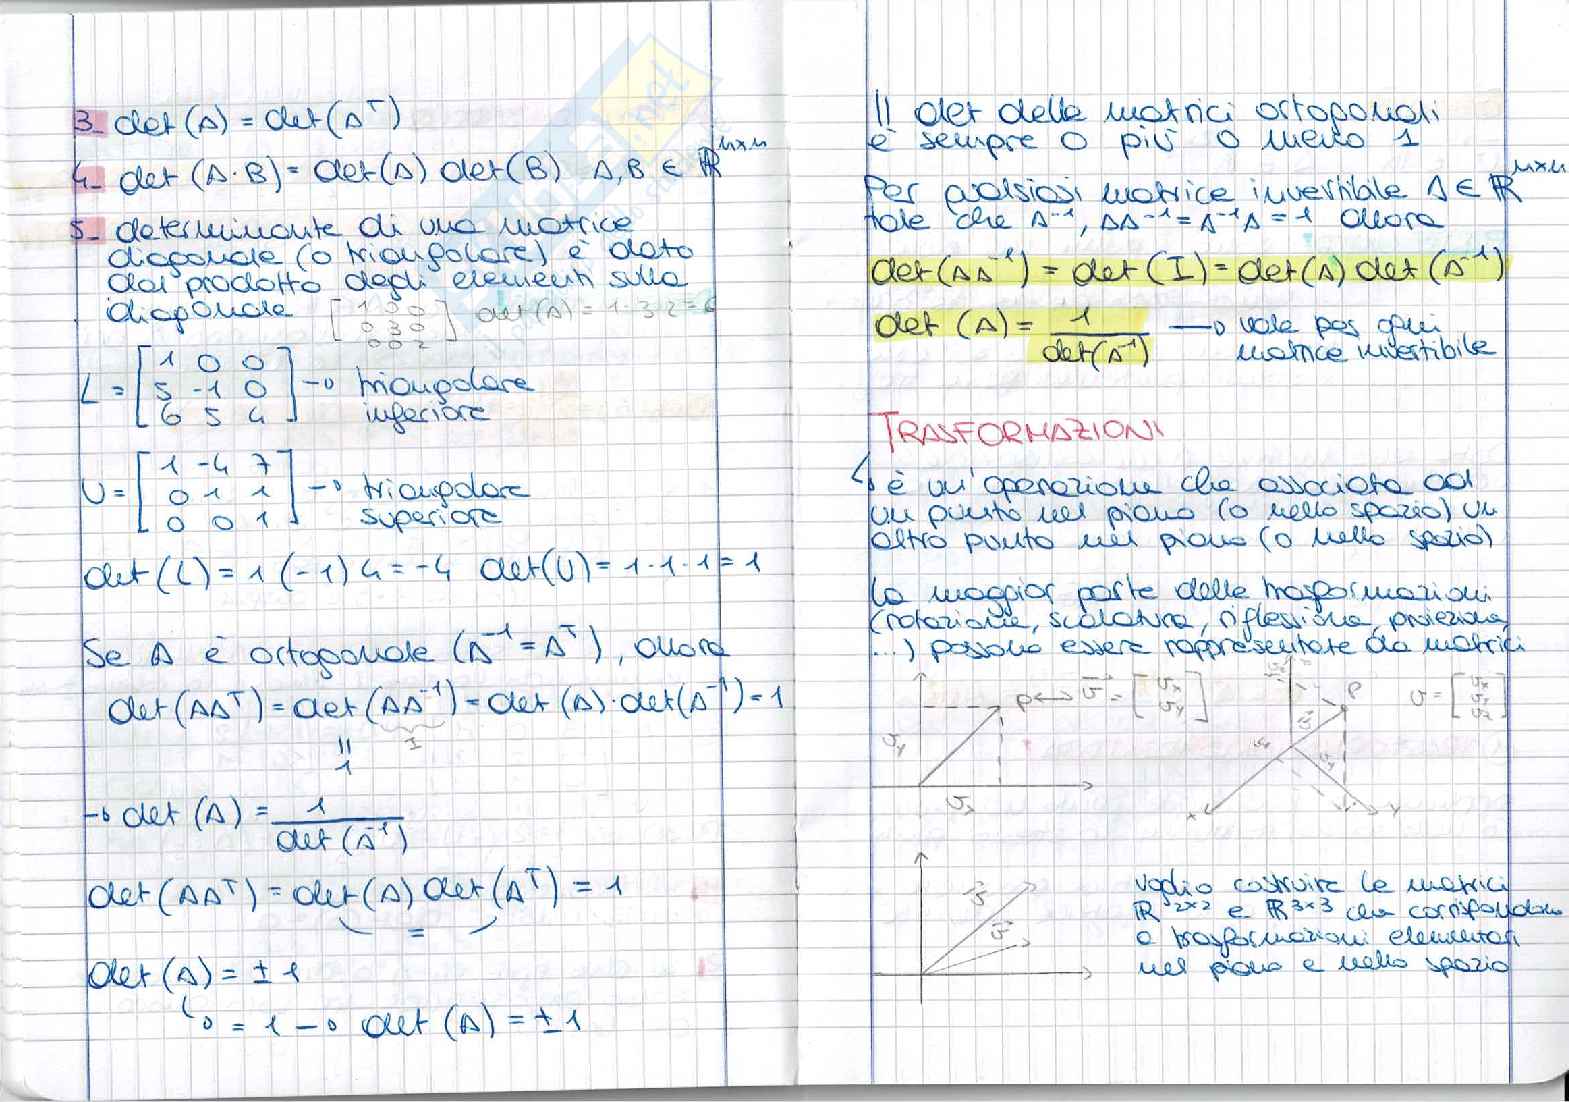 3_ det (A) = det (Aᵀ)
4_ det (A·B) = det(A) det(B) A,B ∈ ℝⁿˣⁿ
5_ determinante di una matrice
diagonale (o triangolare) è dato
dal prodotto degli elementi sulla
diagonale [1 0 0 det(A) = 1·3·2=6
0 3 0
0 0 2]
L = [1 0 0
5 -1 0 → triangolare
6 5 4] inferiore
U = [1 -4 7
0 1 1 → triangolare
0 0 1] superiore
det (L) = 1 (-1) 4 = -4 det(U) = 1·1·1 = 1
Se A è ortogonale (A⁻¹ = Aᵀ), allora
det (AAᵀ) = det (AA⁻¹) = det (A)·det(A⁻¹) = 1
I
=
1
→ det (A) = 1 / det (A⁻¹)
det (AAᵀ) = det (A) det (Aᵀ) = 1
=
det (A) = ± 1
↳ = 1 → det (A) = ±1
Il det delle matrici ortogonali
è sempre o più o meno 1
Per qualsiasi matrice invertibile A ∈ ℝⁿˣⁿ
tale che A⁻¹, AA⁻¹ = A⁻¹A = 1 allora
det (AA⁻¹) = det (I) = det(A) det (A⁻¹)
det (A) = 1 / det(A⁻¹) → vale per ogni
matrice invertibile
TRASFORMAZIONI
↳ è un'operazione che associata ad
un punto nel piano (o nello spazio) un
altro punto nel piano (o nello spazio)
La maggior parte delle trasformazioni
(rotazione, scalatura, riflessione, proiezione,
...) possono essere rappresentate da matrici
P ↔ v = [vx
vy]
vy
vx
vz
P
v
vx
vy
x
y
v = [vx
vy
vz]
v
v
Voglio costruire le matrici
ℝ²ˣ² e ℝ³ˣ³ che corrispondono
a trasformazioni elementari
nel piano e nello spazio